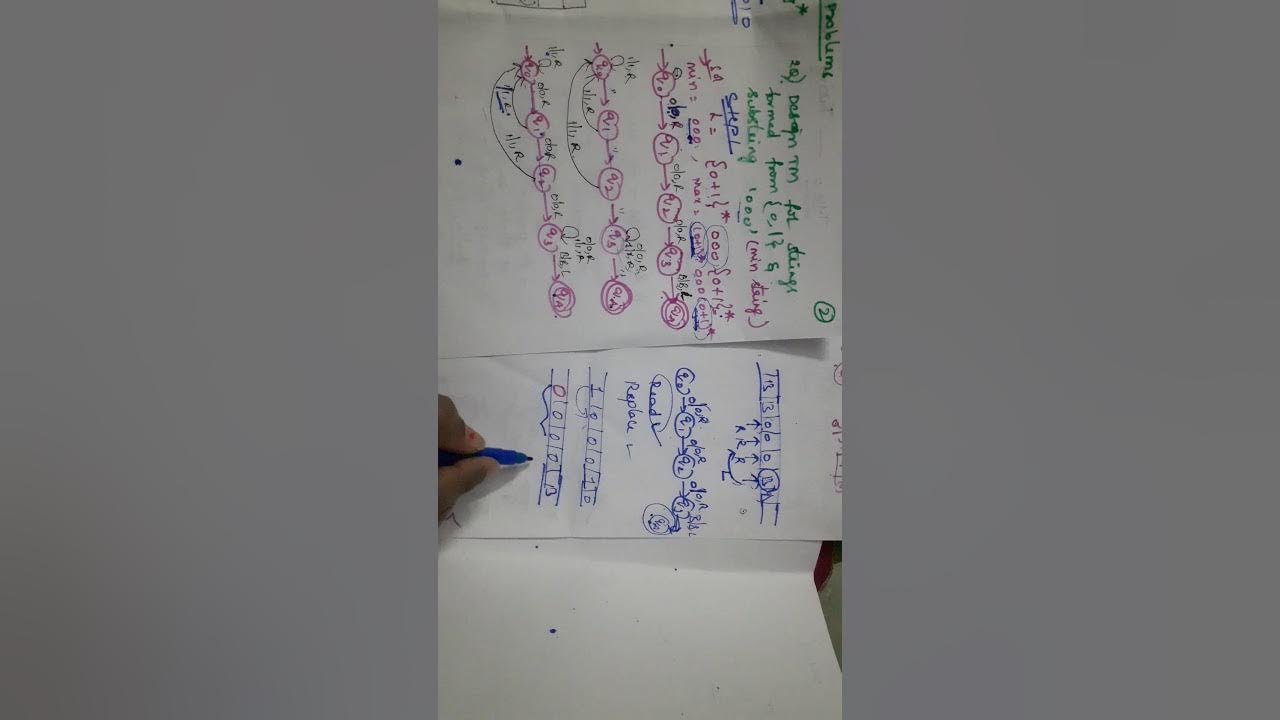 2Q) Design TM for strings
formed from {0,1} &
substring '000' (min string)
Step1
L = {0+1}* 000 {0+1}*
min = 000, max = (0+1)* 000 (0+1)*
q0 0/0,R q1 0/0,R q2 0/0,R q3 B/B,L q4
1/1,R
q0 q1 q2 q3 q4
1/1,R
1/1,R
1/1,R
q0 0/0,R q1 0/0,R q2 0/0,R q3 B/B,L q4
0/0,R
1/1,R
1/1,R
1/1,R
2
B B 0 0 0 B
R R R L
q0 0/0,R q1 0/0,R q2 0/0,R q3 B/B,L
Read
Replace
1 0 0 0 1 0
0 0 0 0 B